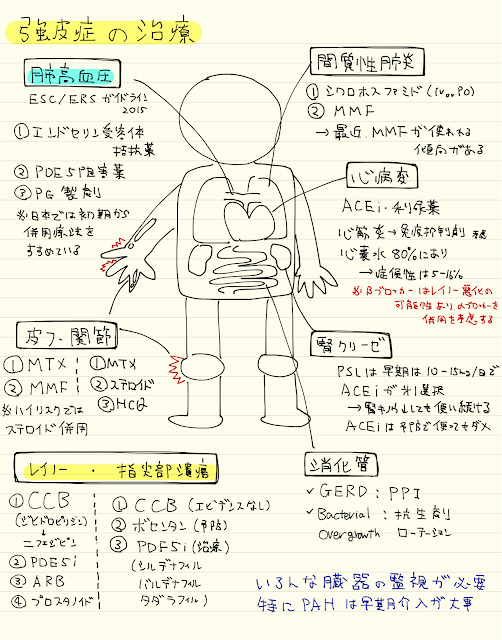 強皮症の治療
肺高血圧
ESC/ERSガイドライン
2015
① エンドセリン受容体
拮抗薬
② PDE5阻害薬
③ PG製剤
※日本では初期から
併用療法を
すすめている
間質性肺炎
① シクロホスファミド (IV or PO)
② MMF
→ 最近、MMFが使われる
傾向がある
心病変
ACEi・利尿薬
心筋炎→免疫抑制剤
心嚢水 80%にあり
→症候性は5-15%
※βブロッカーはレイノー悪化の
可能性あり、αブロッカーを
併用を考慮する
皮フ・関節
① MTX
② MMF
※ハイリスクでは
ステロイド併用
① MTX
② ステロイド
③ HCQ
腎クリーゼ
PSLは早期は10-15mg/日で
ACEiが第1選択
→腎キノウしても使い続ける
ACEiは予防で使ってもダメ
レイノー・指尖部潰瘍
① CCB
(ジヒドロピリジン)
↓
ニフェジピン
② PDE5i
③ ARB
④ プロスタノイド
① CCB (エビデンスなし)
② ボセンタン (予防)
③ PDF5i (治療)
(シルデナフィル
バルデナフィル
タダラフィル)
消化管
✓ GERD : PPI
✓ Bacterial : 抗生剤
overgrowth ローテーション
いろんな臓器の監視が必要
特にPAHは早期介入が大事